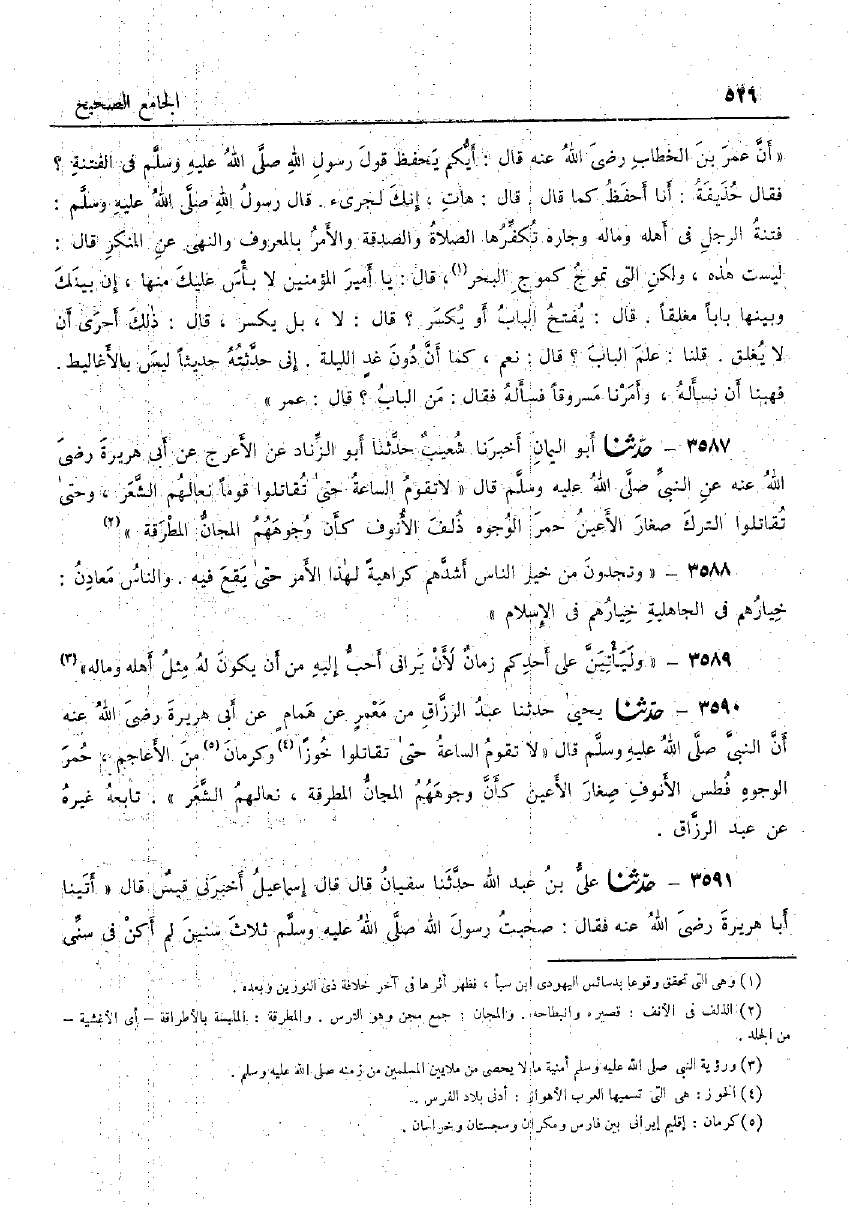 ٥٢٩
الجامع الصحيح
« أَنَّ عمرَ بنَ الخطاب رضىَ اللهُ عنه قال : أَيُّكم يَحفظ قولَ رسولِ اللهِ صلَّى اللهُ عليهِ وسلَّم فى الفتنةِ ؟
فقال حُذَيفةُ : أنا أَحفَظُ كما قال . قال : هاتِ ، إنكَ لجرىء . قال رسولُ اللهِ صلَّى اللهُ عليهِ وسلَّم :
فتنةُ الرجلِ فى أهله وماله وجاره تُكفِّرُها الصلاةُ والصدقة والأَمرُ بالمعروف والنهى عنِ المنكرِ قال :
ليست هٰذه ، ولكنِ التى تموجُ كموجِ البحر(١)، قال : يا أَميرَ المؤمنين لا بأْسَ عليكَ منها ، إن بينَكَ
وبينها باباً مغلقاً . قال : يُفتحُ البابُ أو يُكسَر ؟ قال : لا ، بل يكسر ، قال : ذٰلكَ أَحرَى أن
لا يُغلق . قلنا : علمَ البابَ ؟ قال : نعم ، كما أَنَّ دُونَ غدٍ الليلة . إنى حدَّثتُهُ حديثاً ليسَ بالأَغاليط .
فهبنا أن نسأَلهُ ، وأَمَرْنا مَسروقاً فسأَلهُ فقال : مَن البابُ ؟ قال : عمر »
٣٥٨٧ – حدّثنا أبو اليمانِ أخبرَنا شُعيبٌ حدَّثَنا أبو الزِّناد عن الأعرج عن أبى هريرةَ رضىَ
اللهُ عنه عنِ النبىِّ صلَّى اللهُ عليه وسلَّم قال « لاتقومُ الساعةُ حتىٰ تُقاتلوا قوماً نعالُهم الشَّعَر ، وحتىٰ
تُقاتلوا التركَ صغارَ الأَعينُ حمرَ الوُجوه ذُلفَ الأُنوف كأَن وُجوهَهُمُ المجانُّ المطْرَقة » (٢)
٣٥٨٨ – « وتجدونَ من خيرِ الناس أشدَّهم كراهيةً لهٰذا الأَمر حتىٰ يقعَ فيه . والناسُ مَعادِنُ :
خِيارُهم فى الجاهليةِ خِيارُهم فى الإِسلام »
٣٥٨٩ – « ولَيَأْتِيَنَّ على أَحدِكم زمانٌ لأَنْ يَرانى أحبُّ إليهِ من أن يكونَ لهُ مِثلُ أهله وماله» (٣)
٣٥٩٠ – حدّثنا يحيىٰ حدثنا عبدُ الرزَّاقِ من مَعْمرٍ عن هَمامٍ عن أبى هريرةَ رضىَ اللهُ عنه
أَنَّ النبىَّ صلَّى اللهُ عليهِ وسلَّم قال «لا تقومُ الساعةُ حتىٰ تقاتلوا خُوزًا(٤) وكرمانَ(٥) منَ الأَعاجم ، حُمرَ
الوجوهِ فُطسَ الأُنوفِ صِغارَ الأَعين كأَنَّ وجوهَهُمُ المجانُّ المطرقة ، نعالهمُ الشَّعَر » . تابعهُ غيرهُ
عن عبد الرزَّاق .
٣٥٩١ – حدّثنا علىُّ بنُ عبد الله حدَّثَنا سفيانُ قال قال إسماعيلُ أخبرَنى قيسٌ قال « أَتَينا
أبا هريرةَ رضىَ اللهُ عنه فقال : صحبتُ رسولَ الله صلَّى اللهُ عليه وسلَّم ثلاثَ سنينَ لم أكنْ فى سنِّى
(١) وهى التى تحقق وقوعها بدسائس اليهودى ابن سبأ ، فظهر أثرها فى آخر خلافة ذى النورين وبعده .
(٢) الذلف فى الأنف : قصره وانبطاحه . والمجان : جمع مجن وهو الترس . والمطرقة : الملبسة بالأطراقة – أى الأغشية –
من الجلد .
(٣) ورؤية النبى صلى الله عليه وسلم أمنية ما لا يحصى من ملايين المسلمين من زمنه صلى الله عليه وسلم .
(٤) الخوز : هى التى تسميها العرب الأهواز : أدنى بلاد الفرس .
(٥) كرمان : إقليم إيرانى بين فارس ومكران وسجستان وخراسان .